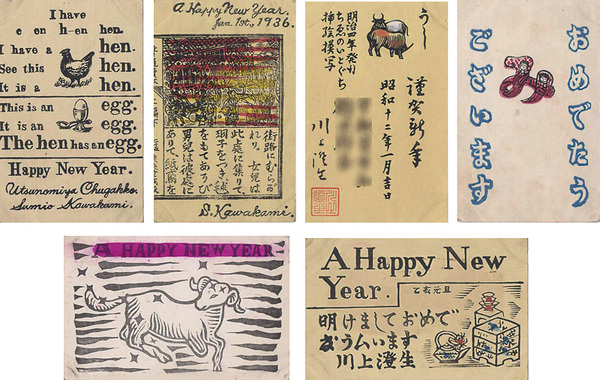 I have
hen.
I have a hen.
See this hen.
It is a hen.
This is an egg.
It is an egg.
The hen has an egg.
Happy New Year.
Utsunomiya Chugakko.
Sumio Kawakami.
A Happy New Year.
Jan. 1st., 1936.
街路にむらが
れり、女児は
此處に集りて、
羽子をつき、毬
をもてあそび
男児は彼處に
ありて、紙鳶を
S. Kawakami.
うし
明治四年発行
ちゑのいとぐち
挿絵模写
謹賀新年
昭和十二年一月吉日
川上澄生
おめでたう
み
ございます
A HAPPY NEW YEAR
A Happy New
Year.
乙亥元旦
明けましておめで
たうムいます
川上澄生